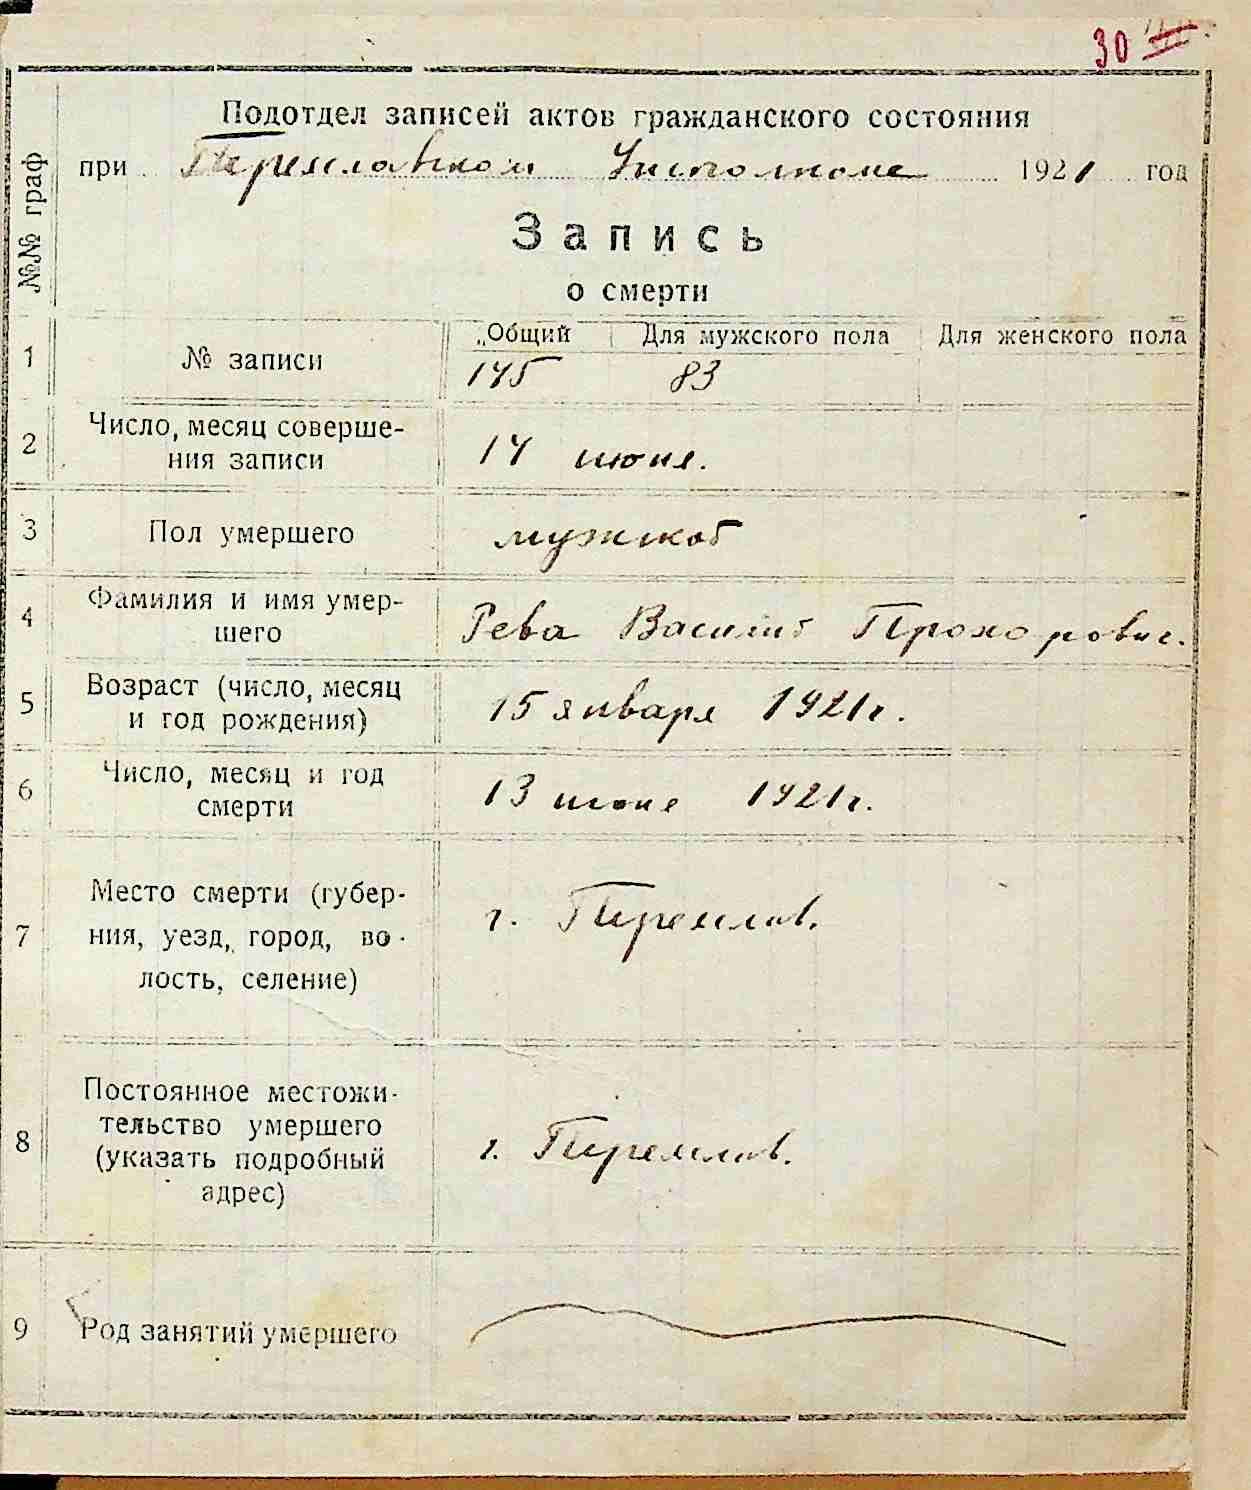 30
Подотдел записей актов гражданского состояния
при Переяславском Исполкоме 1921 год
№№ граф
Запись
о смерти
„Общий Для мужского пола Для женского пола
1 № записи 145 83
2 Число, месяц соверше-
ния записи 14 июня.
3 Пол умершего мужской
4 Фамилия и имя умер-
шего Рева Василий Прохорович.
5 Возраст (число, месяц
и год рождения) 15 января 1921 г.
6 Число, месяц и год
смерти 13 июня 1921 г.
7 Место смерти (губер-
ния, уезд, город, во-
лость, селение) г. Переяслав.
8 Постоянное местожи-
тельство умершего
(указать подробный
адрес) г. Переяслав.
9 Род занятий умершего